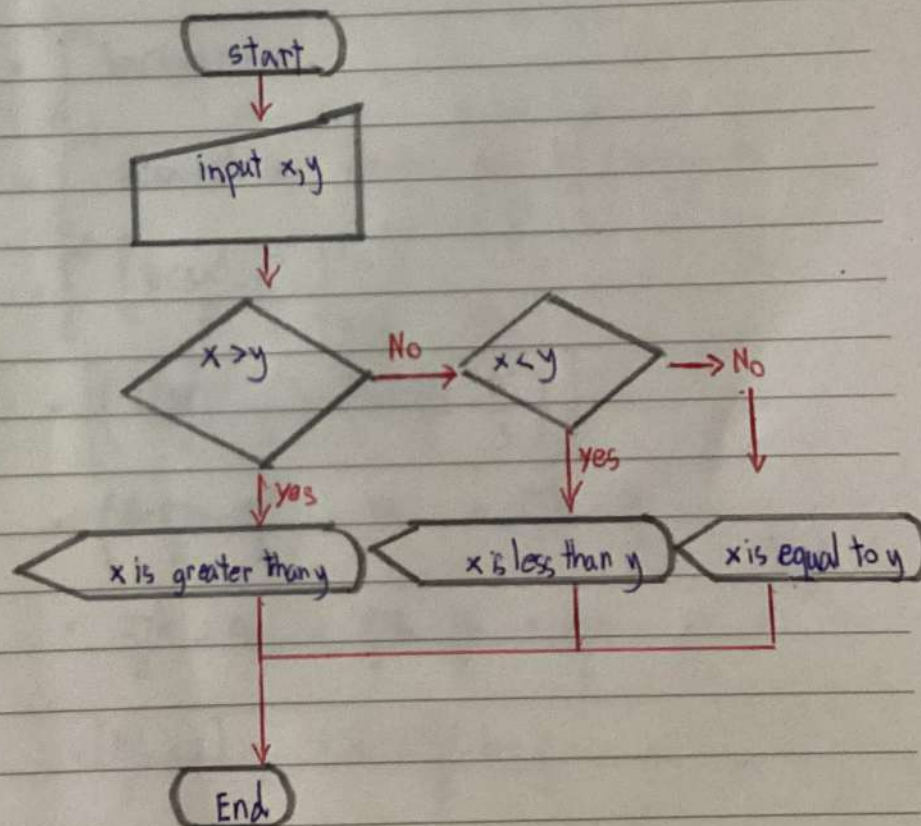 start
input x,y
x >y
No
x < y
No
yes
yes
x is greater than y
x is less than y
x is equal to y
End